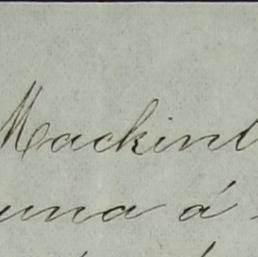 Mackinl
una á